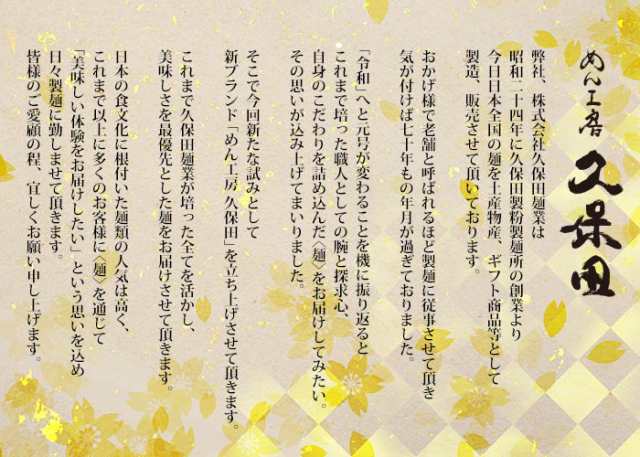 めん工房
久保田
弊社、株式会社久保田麺業は
昭和二十四年に久保田製粉製麺所の創業より
今日日本全国の麺を土産物産、ギフト商品等として
製造、販売させて頂いております。
おかげ様で老舗と呼ばれるほど製麺に従事させて頂き
気が付けば七十年もの年月が過ぎておりました。
「令和」へと元号が変わることを機に振り返ると
これまで培った職人としての腕と探求心、
自身のこだわりを詰め込んだ〈麺〉をお届けしてみたい。
その思いが込み上げてまいりました。
そこで今回新たな試みとして
新ブランド「めん工房 久保田」を立ち上げさせて頂きます。
これまで久保田麺業が培った全てを活かし、
美味しさを最優先とした麺をお届けさせて頂きます。
日本の食文化に根付いた麺類の人気は高く、
これまで以上に多くのお客様に〈麺〉を通じて
「美味しい体験をお届けしたい」という思いを込め
日々製麺に勤しませて頂きます。
皆様のご愛顧の程、宜しくお願い申し上げます。